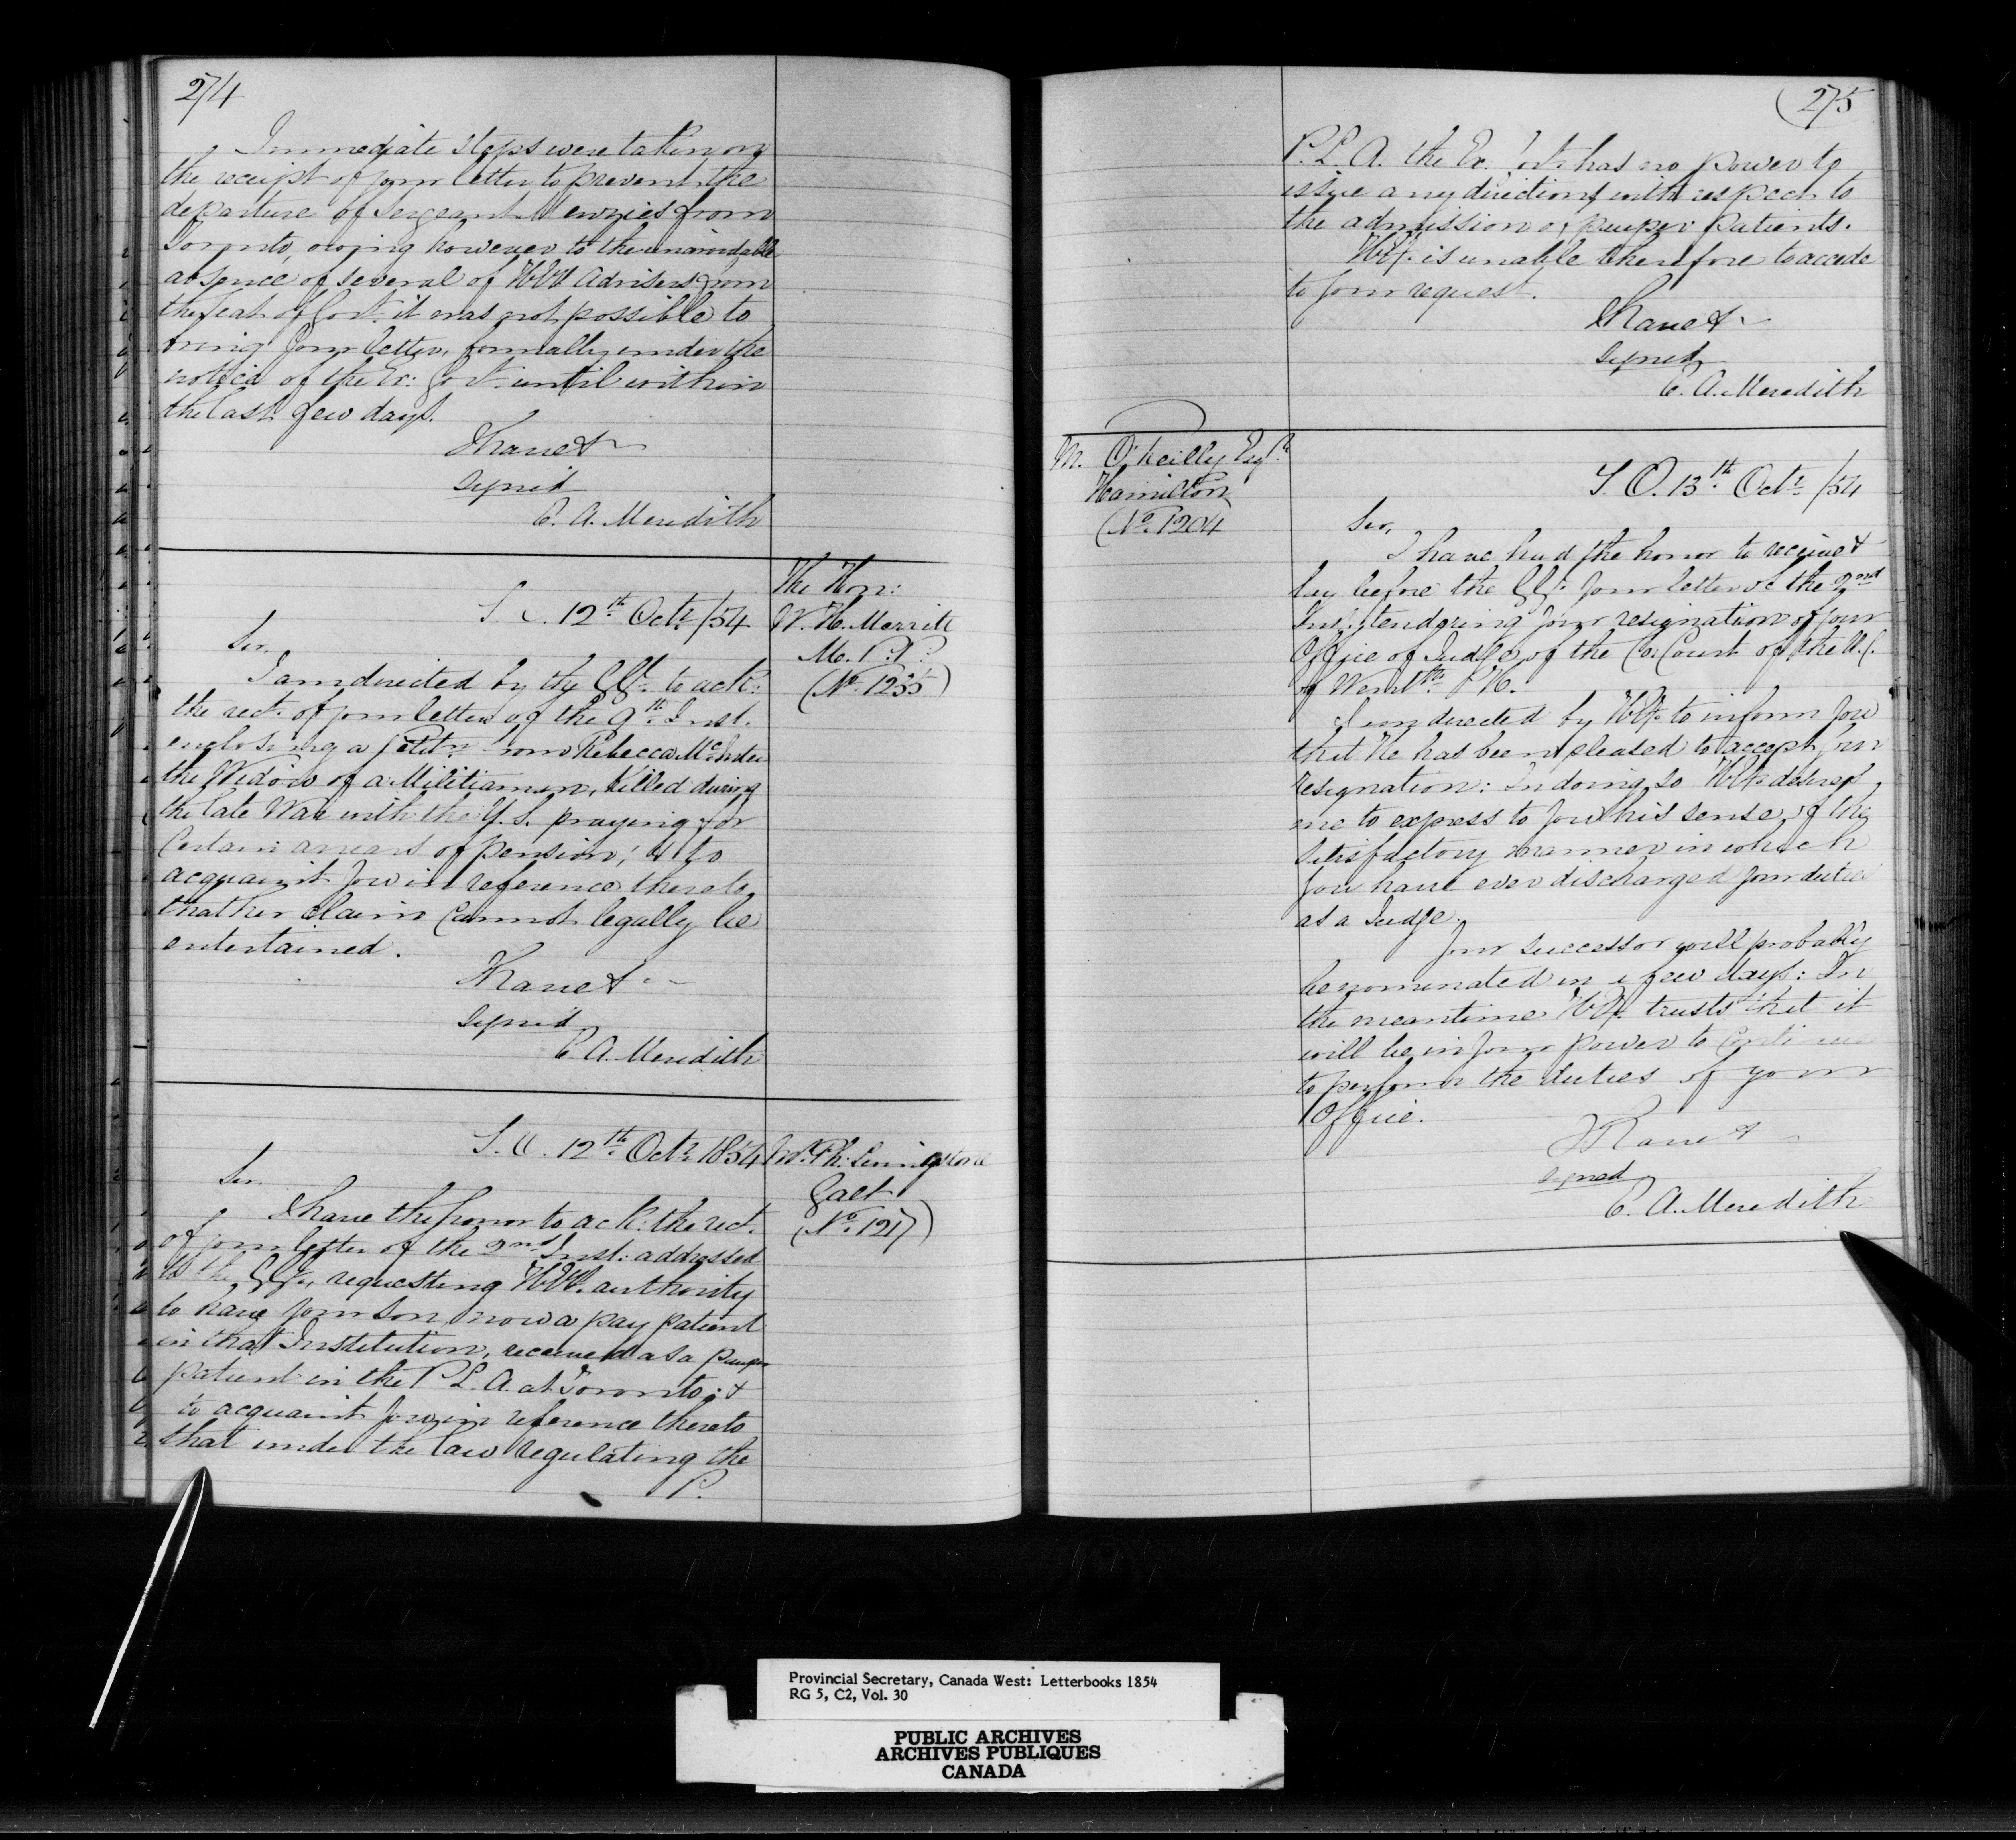 274
Immediate Steps were taken on
the receipt of your letter to prevent the
departure of Sergeant Menzies from
Toronto, owing however to the unavoidable
absence of several of HE's Advisers from
the Seat of Govt. it was not possible to
bring your letter, formally under the
notice of the Ex: Govt. until within
the last few days.
I have &
signed
E. A. Meredith
S. O. 12th Octr /54
The Hon:
W. H. Merritt
M. P. P.
(No. 1235)
Sir,
I am directed by the GG. to ack:
the rect. of your letter of the 9th Inst.
enclosing a Petitn from Rebecca
the Widow of a Militiaman, Killed during
the late War with the U. S. praying for
Certain arrears of pension; & to
acquaint you in reference thereto,
that her claim Cannot legally be
entertained.
I have &
signed
E A. Meredith
S. O. 12th Octr 1854
Mr. Ph.
Galt
(No. 1217)
Sir.
I have the honor to ack: the rect.
of your letter of the 2nd Inst: addressed
to the GG., requesting HE's authority
to have your son, now a pay patient
in that Institution, received as a pauper
patient in the P L. A. at Toronto; &
to acquaint you in reference thereto
that under the law regulating the
P.
275
P. L. A. the Ex. Govt. has no power to
issue any directions with respect to
the admission of pauper patients.
HE. is unable therefore to accede
to your request.
I have &
signed
E. A. Meredith
M. O'Reilly Esqr.
Hamilton
(No. 1204
S. O. 13th Octr /54
Sir,
I have had the honor to receive &
lay before the GG. your letter of the 2nd
Inst. tendering your resignation of your
Office of Judge of the Co: Court of the U. C.
of Wentth.
I am directed by HE. to inform you
that He has been pleased to accept your
resignation: In doing so HE. desires
me to express to you his sense of the
satisfactory manner in which
you have ever discharged your duties
as a Judge.
Your successor will probably
be nominated in a few days: In
the meantime HE. trusts that it
will be in your power to Continue
to perform the duties of your
Office.
I have &
signed
E. A. Meredith
Provincial Secretary, Canada West: Letterbooks 1854
RG 5, C2, Vol. 30
PUBLIC ARCHIVES
ARCHIVES PUBLIQUES
CANADA